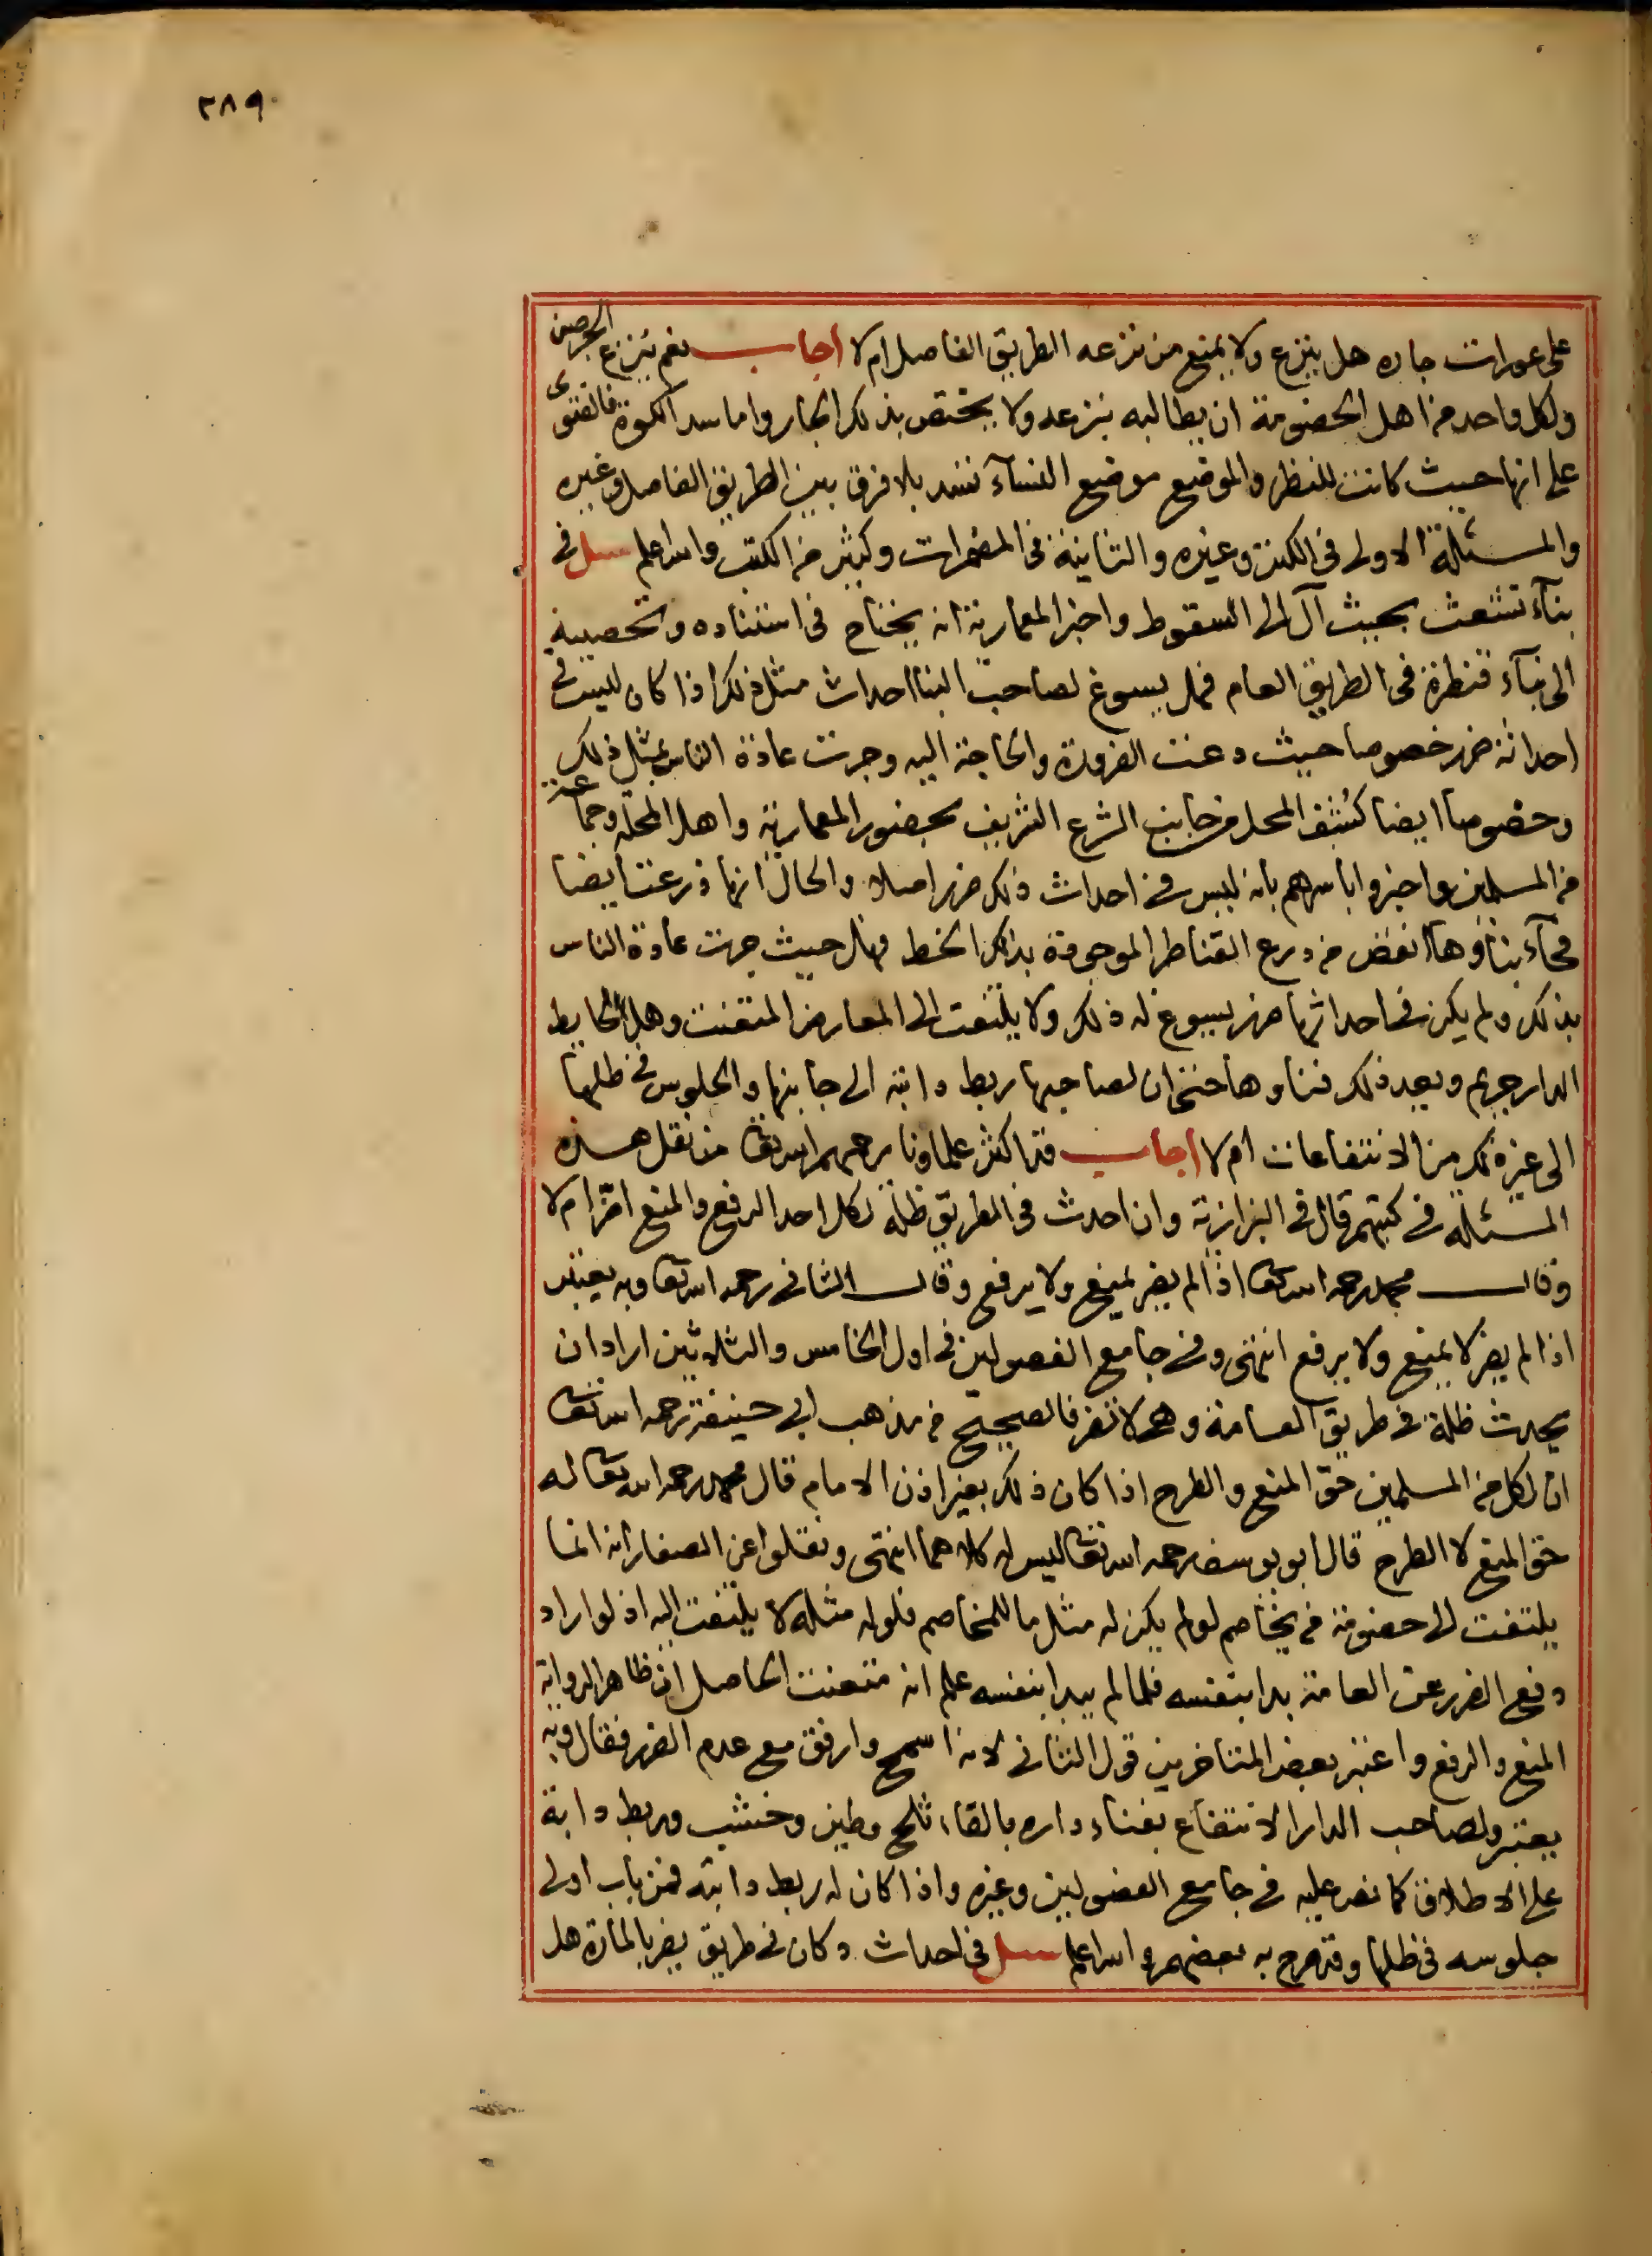 ٢٨٩
على عورات جاره هل ينزع ولا يمنع من نزعه الطريق الفاصل ام لا اجاب نعم ينزع الجرصن
ولكل واحد من اهل الخصومة ان يطالبه بنزعه ولا يختص بذلك الجار واما سد الكوة فالفتوى
على انها حيث كانت للنظر والموضع موضع النساء تسد بلا فرق بين الطريق الفاصل وغيره
والمسئلة الاولى فى الكنز وغيره والثانية فى المضمرات وكثير من الكتب والله اعلم سئل فى
بناء تشعث بحيث آل الى السقوط واخبر المعمارية انه يحتاج فى استناده وتحصينه
الى بناء قنطرة فى الطريق العام فهل يسوغ لصاحب البنا احداث مثل ذلك اذا كان ليس فى
احداثه ضرر خصوصا حيث دعت الضرورة والحاجة اليه وجرت عادة الناس بمثل ذلك
وخصوصا ايضا كشف المحل من جانب الشرع الشريف بحضور المعمارية واهل المحله وجماعة
من المسلمين واخبروا باسرهم بانه ليس فى احداث ذلك ضرر اصلا والحال انها ذرعت ايضا
فجآء بناؤها انقض من ذرع القناطر الموجودة بذلك الخط فهل حيث جرت عادة الناس
بذلك ولم يكن فى احداثها ضرر يسوغ له ذلك ولا يلتفت الى المعارض المتعنت وهل لحايط
الدار حريم وبعد ذلك فناوها حتى ان لصاحبها ربط دابته الى جانبها والجلوس فى ظلها
الى غير ذلك من الانتفاعات ام لا اجاب قد اكثر علماونا رحمهم الله تعا من نقل هذه
المسئلة فى كتبهم قال فى البزازية وان احدث فى الطريق ظلة لكل احد الرفع والمنع اضر ام لا
وقال محمد رحمه الله تعا اذا لم يضر يمنع ولا يرفع وقال الثانى رحمه الله تعا وبه يعتبر
اذا لم يضر لا يمنع ولا يرفع انتهى وفى جامع الفصولين فى اول الخامس والثلاثين اراد ان
يحدث ظلة فى طريق العامة وهى لا تضر فالصحيح من مذهب ابى حنيفة رحمه الله تعا
ان لكل من المسلمين حق المنع والطرح اذا كان ذلك بغير اذن الامام قال محمد رحمه الله تعا له
حق المنع لا الطرح قال ابو يوسف رحمه الله تعا ليس له كلاهما انتهى ونقلوا عن الصفار انه انما
يلتفت الى خصومة من يخاصم لو لم يكن له مثل ما للمخاصم فلو له مثله لا يلتفت اليه اذ لو اراد
دفع الضرر عن العامة بدا بنفسه فلما لم يبدا بنفسه علم انه متعنت الحاصل ان ظاهر الرواية
المنع والرفع واعتبر بعض المتاخرين قول الثانى لانه اسمح وارفق مع عدم الضرر فقال وبه
يعتبر ولصاحب الدار الانتفاع بفناء داره بالقاء ثلج وطين وخشب وربط دابة
على الاطلاق كما نص عليه فى جامع الفصولين وغيره واذا كان له ربط دابته فمن باب اولى
جلوسه فى ظلها وقد صرح به بعضهم والله اعلم سئل فى احداث دكان فى طريق يضر بالمارة هل